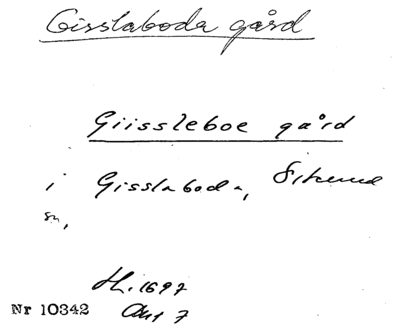 Gisslaboda gård
Giissleboe gård
i Gisslaboda,
sn,
Hl. 1697
Nr 10342 Akt 7